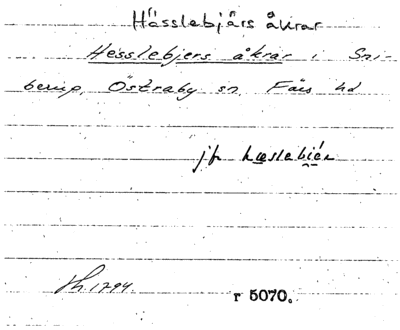 Hässlebjärs åkrar
Hesslebjers åkrar i Sni-
berup, Östraby sn, Färs hd
jfr hæslebiér
1794.
r 5070.